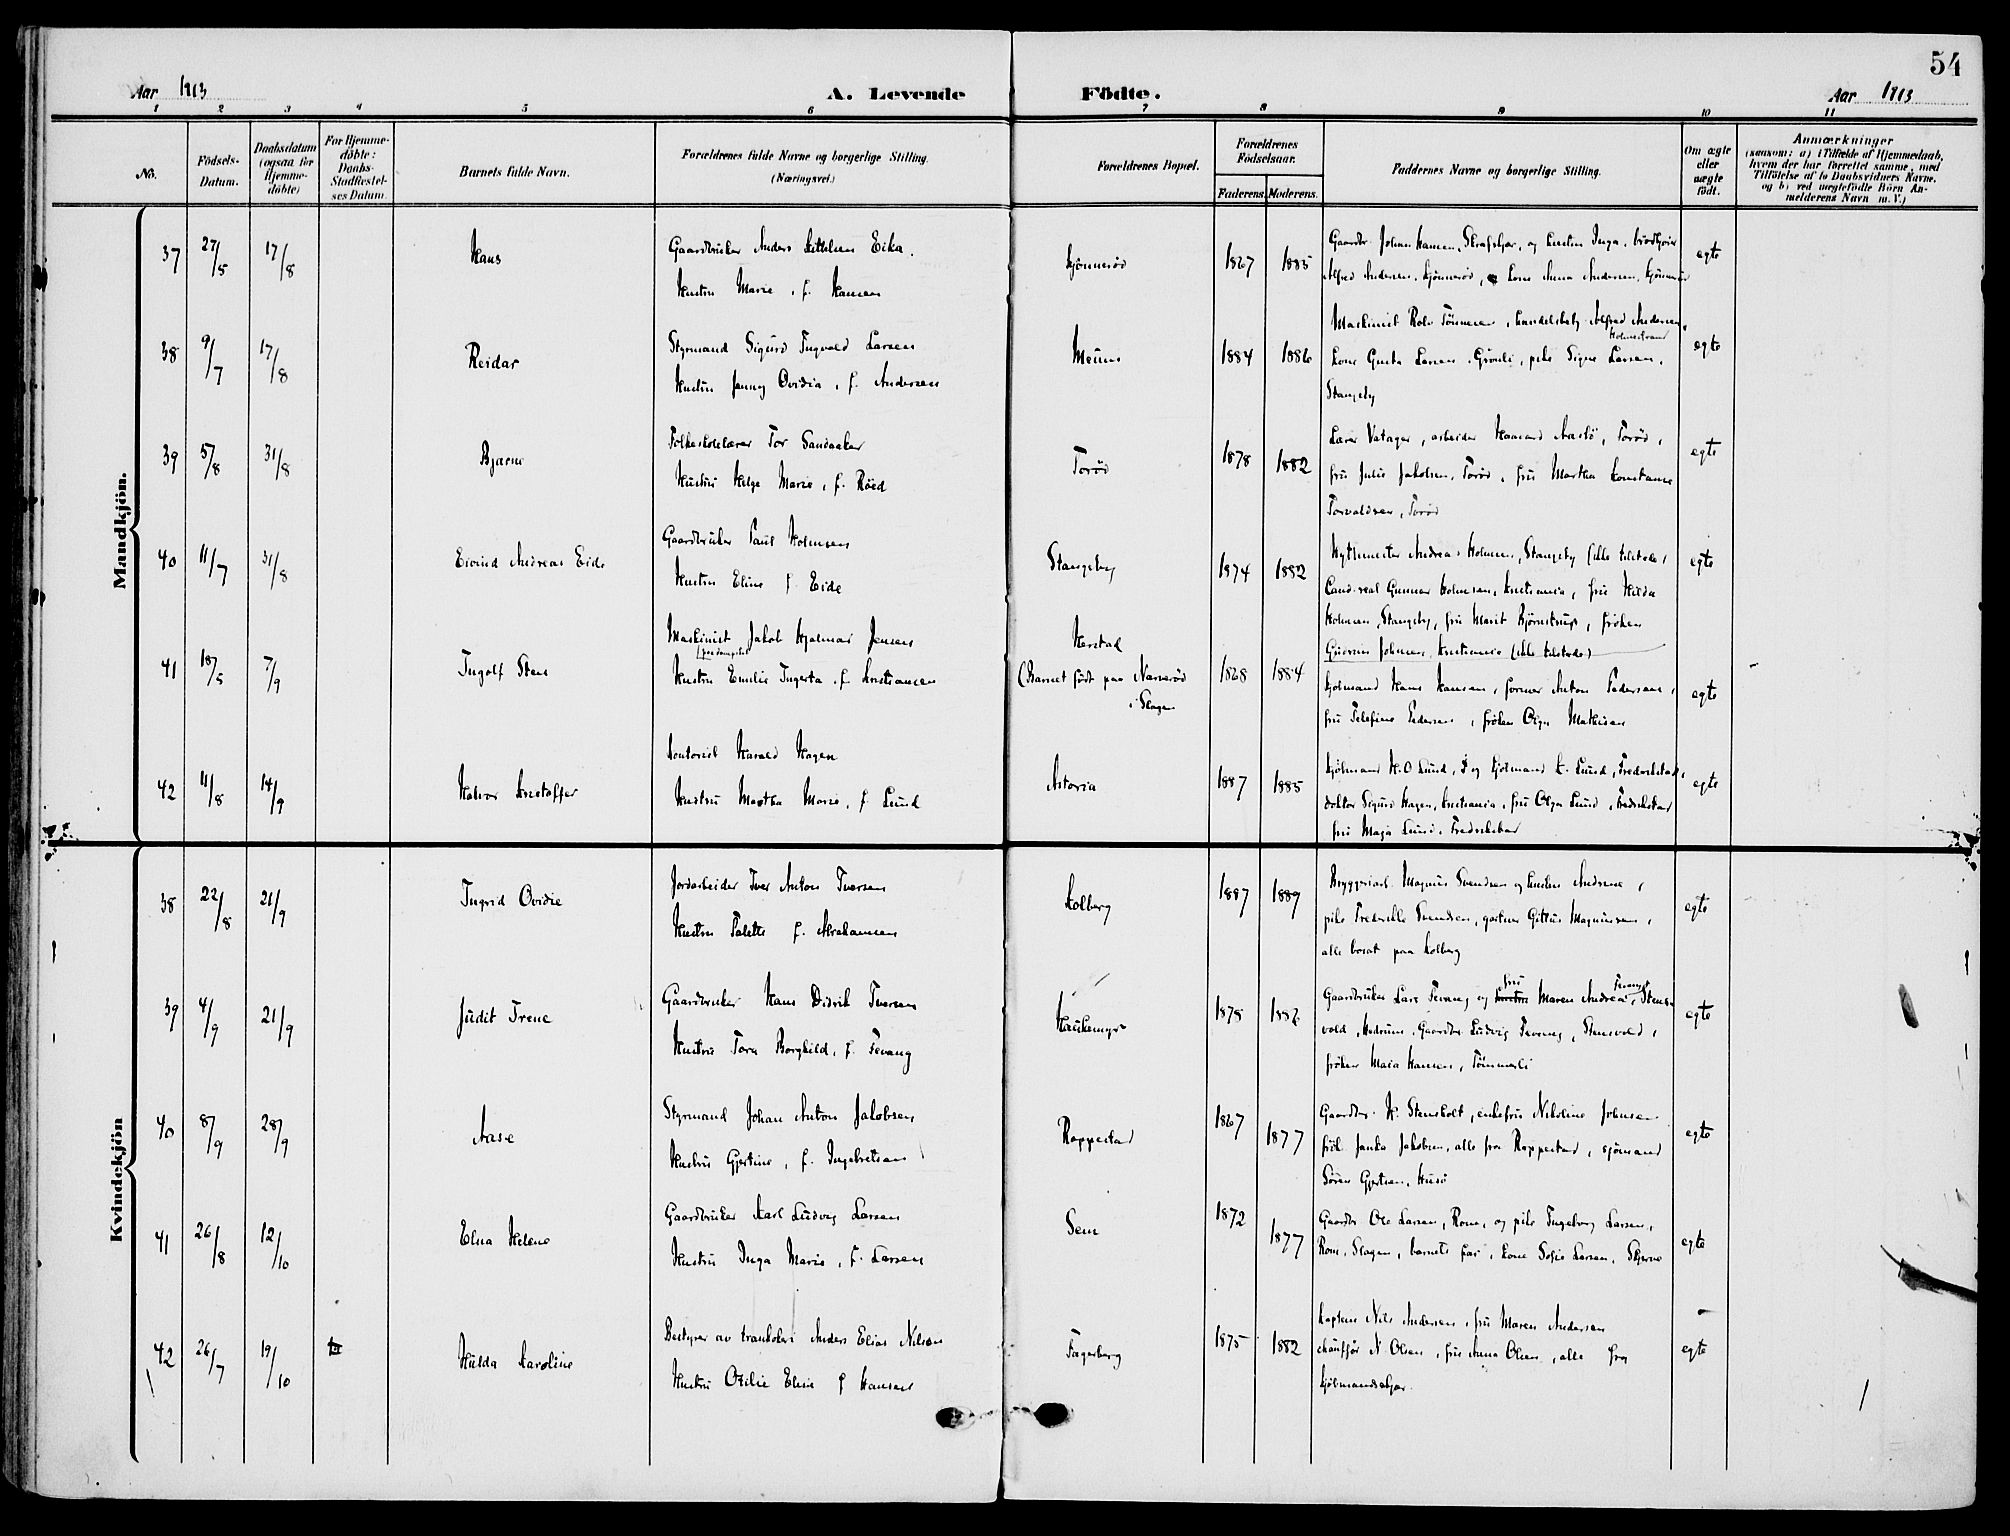 54
Aar 1913
A. Levende Födte.
Aar 1913
1 2 3 4 5 6 7 8 9 10 11
No.
Födsels-Datum.
Daabsdatum (ogsaa for Hjemmedöbte)
For Hjemmedöbte: Daabs-Stadfæstelses Datum.
Barnets fulde Navn.
Forældrenes fulde Navne og borgerlige Stilling.
(Næringsvei.)
Forældrenes Bopæl.
Forældrenes Födselsaar.
Faderens. Moderens.
Faddernes Navne og borgerlige Stilling.
Om ægte eller uægte födt.
Anmærkninger
(saasom: a) i Tilfælde af Hjemmedaab, hvem der har forrettet samme, med Tilföielse af to Daabsvidners Navne, og b) ved uægtefödte Börn Anmelderens Navn m. V.)
Mandkjön.
37 27/5 17/8 Hans
Gaardbruker Anders Eika.
Hustru Marie, f. Hansen
1867 1885
Gaardbr. Johan Hansen, og hustru Inga,
Alfred Andersen, kone Anna Andersen,
egte
38 9/7 17/8 Reidar
Styrmand Sigurd Ingvald Larsen
Hustru Jenny Ovidia, f. Andersen
1884 1886
Maskinist Rolv Alfred Andersen,
Holmestrand
kone Larsen, pike Signe Larsen,
Stangeby
egte
39 5/8 31/8 Bjarne
Folkeskolelærer Tor Sandaaker
Hustru Helga Marie, f. Röed
Torød
1878 1882
Lærer Vatager, arbeider Torød,
fru Julie Jakobsen, Torød, fru Martha Konstanse
Torvaldsen, Torød
egte
40 11/7 31/8 Eivind Andreas Eide
Gaardbruker Paul Holmsen
Hustru Eline f. Eide
Stangeby
1874 1882
Andreas Holmsen, Stangeby (ikke tilstede),
Cand. real Gunnar Holmsen, Kristiania, fru Hilda
Holmsen, Stangeby, fru Marit fröken
Kristiania (ikke tilstede)
egte
41 18/5 7/9 Ingolf Sten
Maskinist Jakob Hjalmar Jensen
Hustru Emilie Ingerta f. Kristiansen
(Barnet födt paa Narverød
i Slagen
1884
Hans Hansen, former Anton Pedersen,
fru Pedersen, fröken Olga Mathisen
egte
42 11/8 14/9 Halvor Kristoffer
Kontorist Harald Hagen
Hustru Martha Marie, f. Lund
Astoria
1887 1885
Kjöbmand H.O. Lund, og kjöbmand K. Lund, Fredrikstad,
doktor Sigurd Hagen, Kristiania, fru Olga Lund, Fredrikstad
fru Maja Lund, Fredrikstad
egte
Kvindekjön
38 22/8 21/9 Ingrid Ovidie
Jordarbeider Iver Anton Iversen
Hustru f. Abrahamsen
Kolberg
1887 1889
Magnus Svendsen og hustru Andrine,
pike Fredrikke Svendsen, gartner Magnussen,
alle bosat paa Kolberg
egte
39 4/9 21/9 Judit Irene
Gaardbruker Hans Didrik Iversen
Hustru Tora Borghild, f. Fevang
Haukemyr
1878
Gaardbruker Lars Fevang og fru Maren Andrea Fevang, Stens-
vold, Hedrum, Gaardbr. Ludvig Fevang, Stensvold,
fröken Maia Hansen,
egte
40 8/9 28/9 Aase
Styrmand Johan Anton Jakobsen
Hustru Gjertine, f. Ingebretsen
Roppestad
1867 1877
Gaardbr. H. Stensholt, enkefru Nikoline Johnsen
frök. Janka Jakobsen, alle fra Roppestad, sjömand
Sören Gjertsen, Husö
egte
41 26/8 12/10 Elna Helene
Gaardbruker Karl Ludvig Larsen
Hustru Inga Marie, f. Larsen
Sem
1872 1877
Gaardbr. Ole Larsen, Rom, og pike Ingeborg Larsen,
Rom, Slagen, barnets far, kone Sofie Larsen,
egte
42 26/7 19/10 Hulda Karoline
Bestyrer av trankokeri Anders Elias Nilsen
Hustru Otilie Elise f. Hansen
Fagerberg
1875 1882
Kaptein Nils Andersen, fru Maren Andersen
chauffør N. Olsen, fru Anna Olsen, alle fra
Kjöbmandskjær.
egte